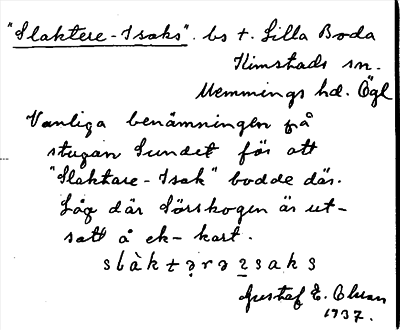 "Slaktere-Isaks". bs t. Lilla Boda
Kimstads sn.
Memmings hd. Ögl
Vanliga benämningen på
stugan Sundet för att
"Slaktare-Isak" bodde där.
Låg där Sörskogen är ut-
satt å ek-kart.
Gustaf E.
1937.